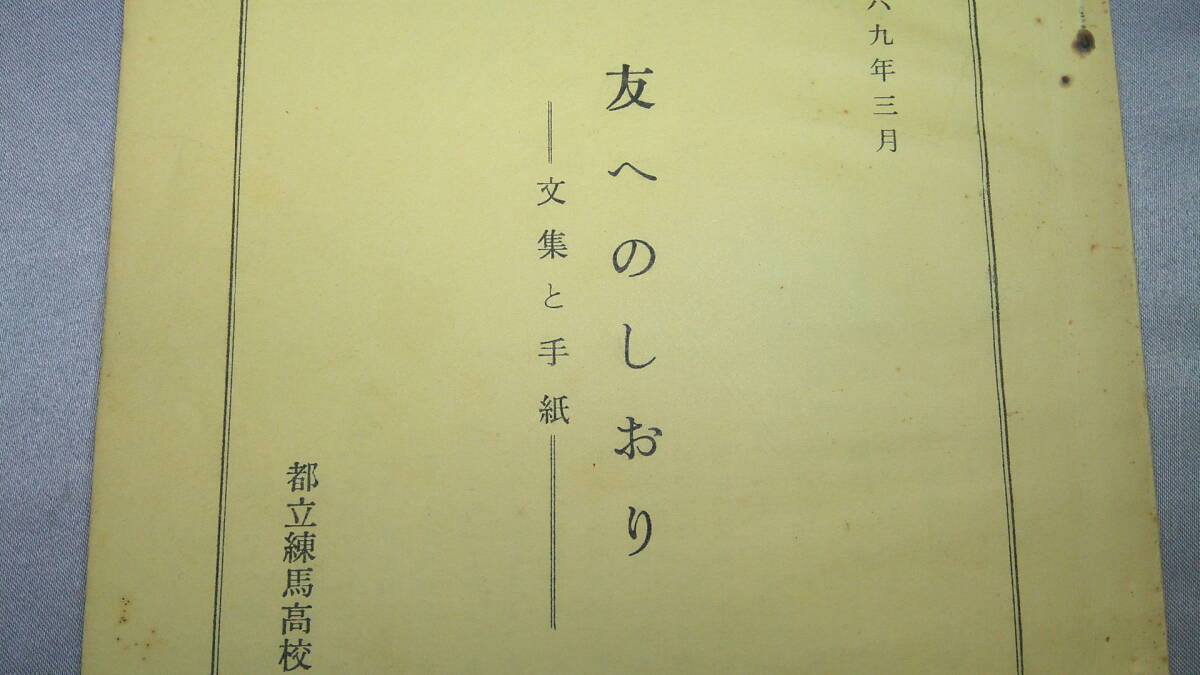 九年三月
友へのしおり
文集と手紙
都立練馬高校